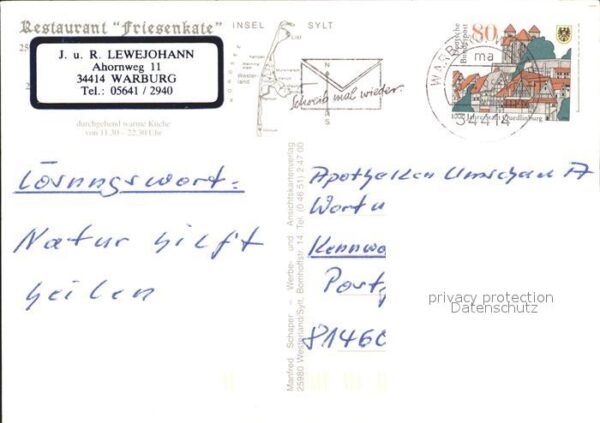 Restaurant "Friesenkate"
INSEL SYLT
J. u. R. LEWEJOHANN
Ahornweg 11
34414 WARBURG
Tel.: 05641 / 2940
durchgehend warme Küche
von 11.30 - 22.30 Uhr
List
Wester-
land
NORDSEE
Schreib mal wieder.
WARB
ma
34414
80
Deutsche
Bundespost
1000 Jahre Stadt Quedlinburg
Lösungswort:
Natur hilft
heilen
Manfred Schaper – Werbe- und Ansichtskartenverlag
25980 Westerland/Sylt, Bomhoffstr. 14, Tel. (0 46 51) 2 47 00
Apotheken Umschau A
Wort u
Kennwo
Post
8146
privacy protection
Datenschutz